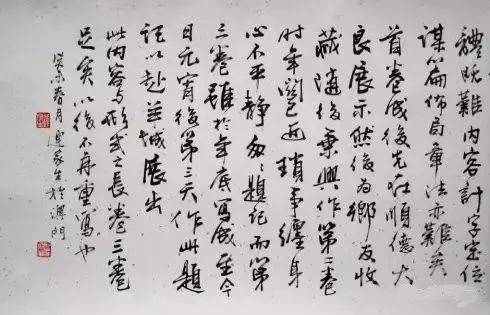 體既難內容計字定位
謀篇佈局章法亦難矣
首卷成後先在順德大
良展示然後為鄉友收
藏隨後乘興作第二卷
时年關已近瑣事纏身
心不平静匆匆題記而第
三卷雖於年底寫成至今
日元宵後第三天作此題
记以赴羊城展出
此内容与形式之長卷三卷
足矣以後不再重寫也
癸未春月連家生於澳門